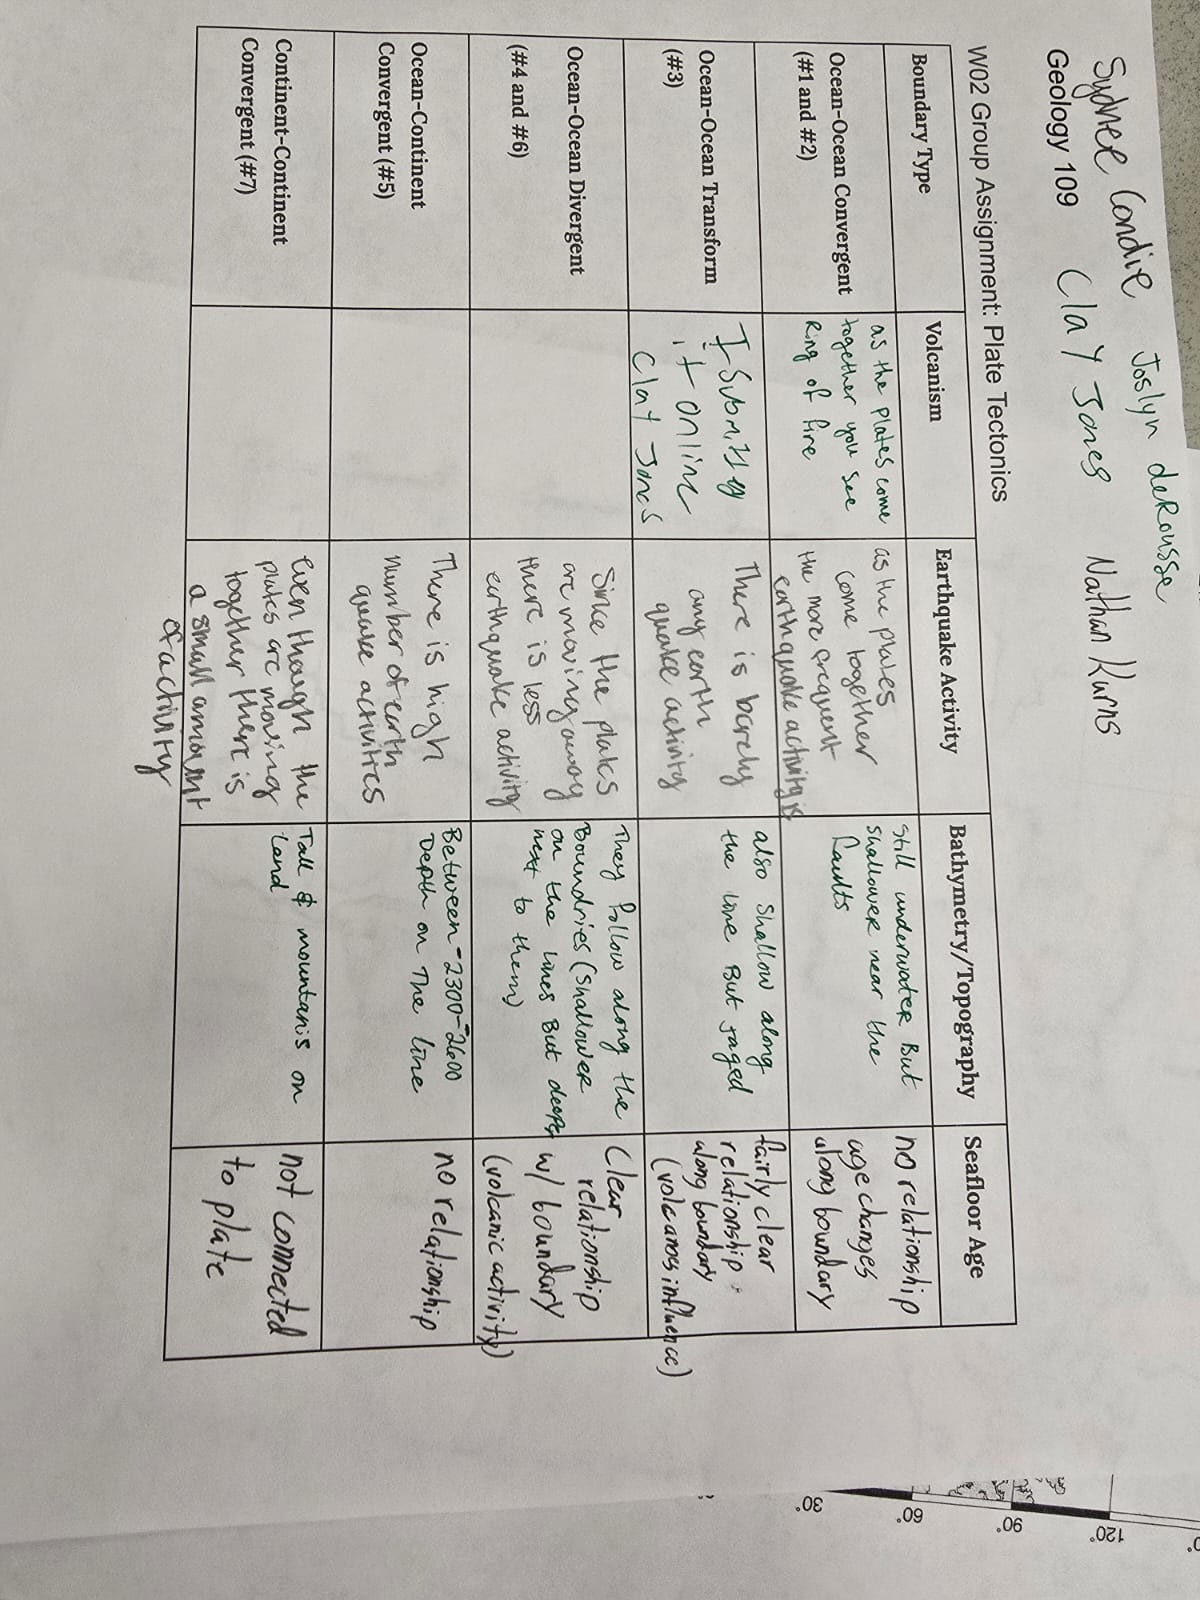 Sydnee Condie Joslyn deRousse
Geology 109 Clay Jones Nathan Kurns
W02 Group Assignment: Plate Tectonics
Boundary Type
Volcanism
Earthquake Activity
Bathymetry/Topography
Seafloor Age
Ocean-Ocean Convergent
(#1 and #2)
as the plates come
together you see
Ring of fire
as the plates
come together
the more frequent
earthquake activity is
Still underwater But
shallower near the
faults
no relationship
age changes
along boundary
Ocean-Ocean Transform
(#3)
I submitted
it online
Clay Jones
There is barely
any earth
quake activity
also shallow along
the line But jaged
fairly clear
relationship
along boundary
(volcanoes influence)
Ocean-Ocean Divergent
(#4 and #6)
Since the plates
are moving away
there is less
earthquake activity
They follow along the
Boundries (shallower
on the lines But deeper
next to them)
Clear
relationship
w/ boundary
(volcanic activity)
Ocean-Continent
Convergent (#5)
There is high
number of earth
quake activites
Between -2300--2600
Depth on The line
no relationship
Continent-Continent
Convergent (#7)
Even though the
plates are moving
together there is
a small amount
of activity
Tall & mountanis on
Land
not connected
to plate
30°
60°
90°
120°